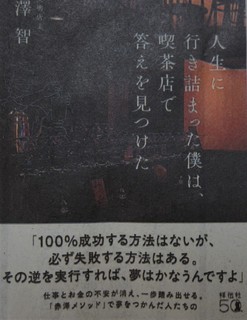 人生に
行き詰まった僕は、
喫茶店で
答えを見つけた
澤 智
「100％成功する方法はないが、
必ず失敗する方法はある。
その逆を実行すれば、夢はかなうんですよ」
仕事とお金の不安が消え、一歩踏み出せる。
「赤澤メソッド」で夢をつかんだ人たちの
祥伝社
50